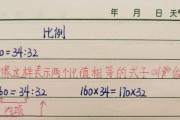 年 月 日 天
比例
0=34:32
像这样表示两个比值相等的式子叫
60=34:32 160×34=170×32
内项